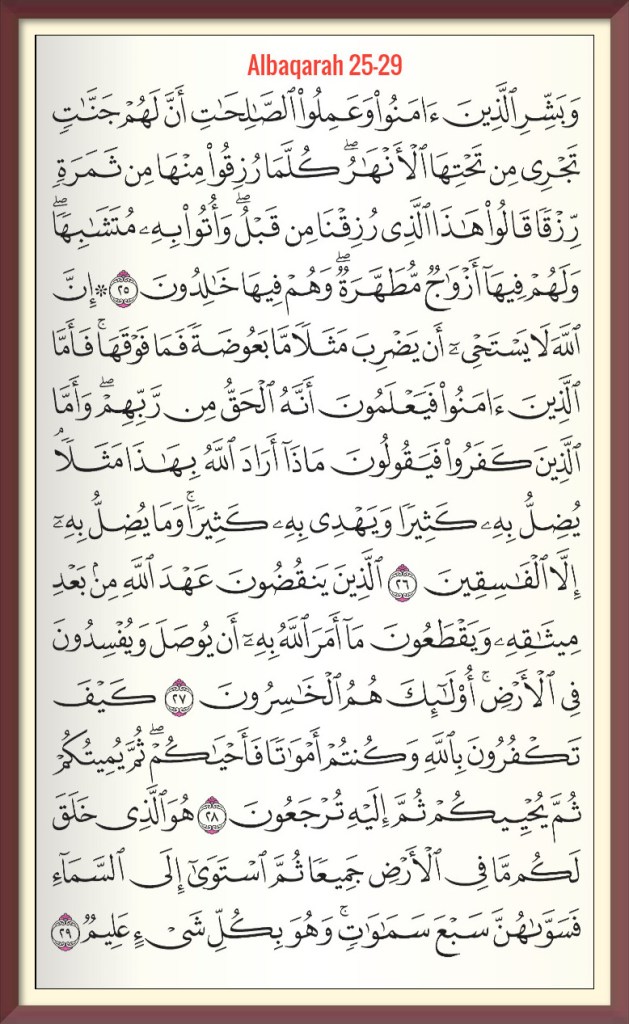 Albaqarah 25-29
وَبَشِّرِ ٱلَّذِينَ ءَامَنُوا۟ وَعَمِلُوا۟ ٱلصَّـٰلِحَـٰتِ أَنَّ لَهُمْ جَنَّـٰتٍ
تَجْرِى مِن تَحْتِهَا ٱلْأَنْهَـٰرُ ۖ كُلَّمَا رُزِقُوا۟ مِنْهَا مِن ثَمَرَةٍ
رِّزْقًا قَالُوا۟ هَـٰذَا ٱلَّذِى رُزِقْنَا مِن قَبْلُ ۖ وَأُتُوا۟ بِهِۦ مُتَشَـٰبِهًا ۖ
وَلَهُمْ فِيهَآ أَزْوَٰجٌ مُّطَهَّرَةٌ ۖ وَهُمْ فِيهَا خَـٰلِدُونَ ٢٥ * إِنَّ
ٱللَّهَ لَا يَسْتَحْىِۦٓ أَن يَضْرِبَ مَثَلًا مَّا بَعُوضَةً فَمَا فَوْقَهَا ۚ فَأَمَّا
ٱلَّذِينَ ءَامَنُوا۟ فَيَعْلَمُونَ أَنَّهُ ٱلْحَقُّ مِن رَّبِّهِمْ ۖ وَأَمَّا
ٱلَّذِينَ كَفَرُوا۟ فَيَقُولُونَ مَاذَآ أَرَادَ ٱللَّهُ بِهَـٰذَا مَثَلًا ۘ
يُضِلُّ بِهِۦ كَثِيرًا وَيَهْدِى بِهِۦ كَثِيرًا ۚ وَمَا يُضِلُّ بِهِۦٓ
إِلَّا ٱلْفَـٰسِقِينَ ٢٦ ٱلَّذِينَ يَنقُضُونَ عَهْدَ ٱللَّهِ مِنۢ بَعْدِ
مِيثَـٰقِهِۦ وَيَقْطَعُونَ مَآ أَمَرَ ٱللَّهُ بِهِۦٓ أَن يُوصَلَ وَيُفْسِدُونَ
فِى ٱلْأَرْضِ ۚ أُو۟لَـٰٓئِكَ هُمُ ٱلْخَـٰسِرُونَ ٢٧ كَيْفَ
تَكْفُرُونَ بِٱللَّهِ وَكُنتُمْ أَمْوَٰتًا فَأَحْيَـٰكُمْ ۖ ثُمَّ يُمِيتُكُمْ
ثُمَّ يُحْيِيكُمْ ثُمَّ إِلَيْهِ تُرْجَعُونَ ٢٨ هُوَ ٱلَّذِى خَلَقَ
لَكُم مَّا فِى ٱلْأَرْضِ جَمِيعًا ثُمَّ ٱسْتَوَىٰٓ إِلَى ٱلسَّمَآءِ
فَسَوَّىٰهُنَّ سَبْعَ سَمَـٰوَٰتٍ ۚ وَهُوَ بِكُلِّ شَىْءٍ عَلِيمٌ ٢٩